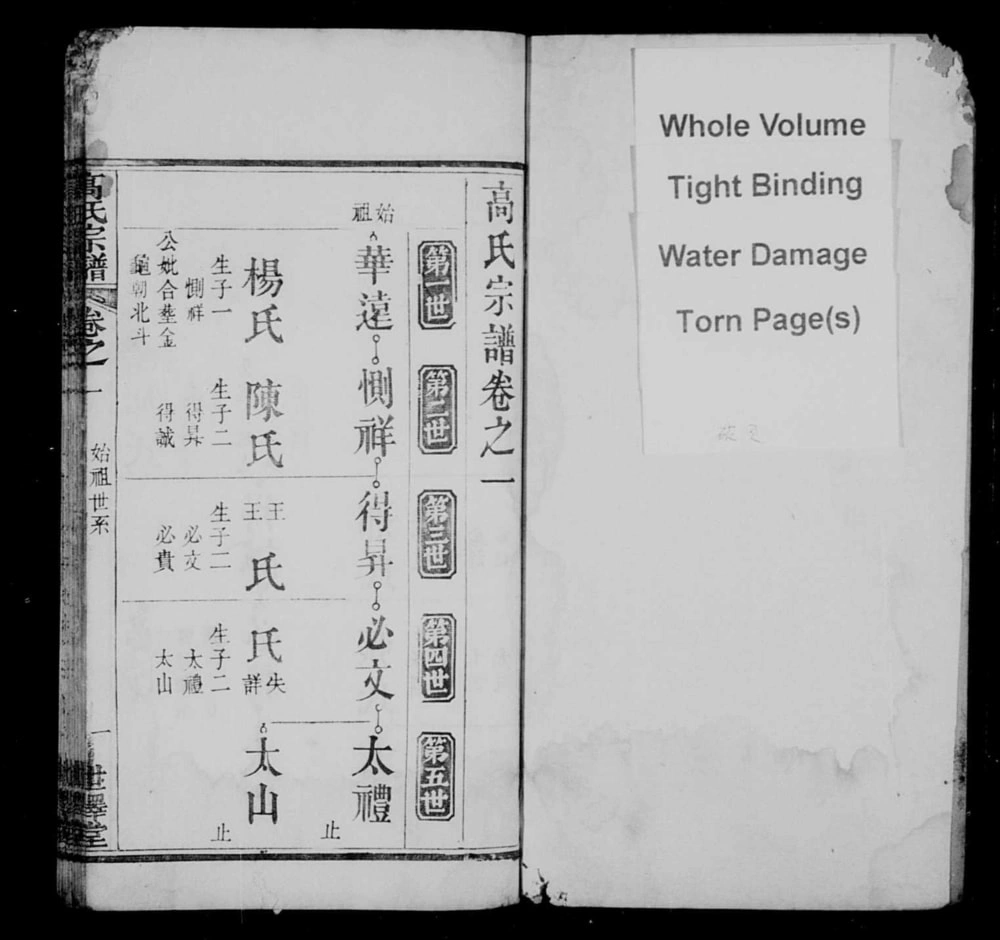 Whole Volume
Tight Binding
Water Damage
Torn Page(s)
高氏宗譜卷之一
第一世
第二世
第三世
第四世
第五世
始祖
華遠
惻祥
得昇
必文
太禮
止
楊氏
陳氏
王王氏
氏失詳
太山
止
生子一
惻祥
公妣合塟金
龜朝北斗
生子二
得昇
得誠
生子二
必文
必貴
生子二
太禮
太山
高氏宗譜
卷之一
始祖世系
一
世譯堂